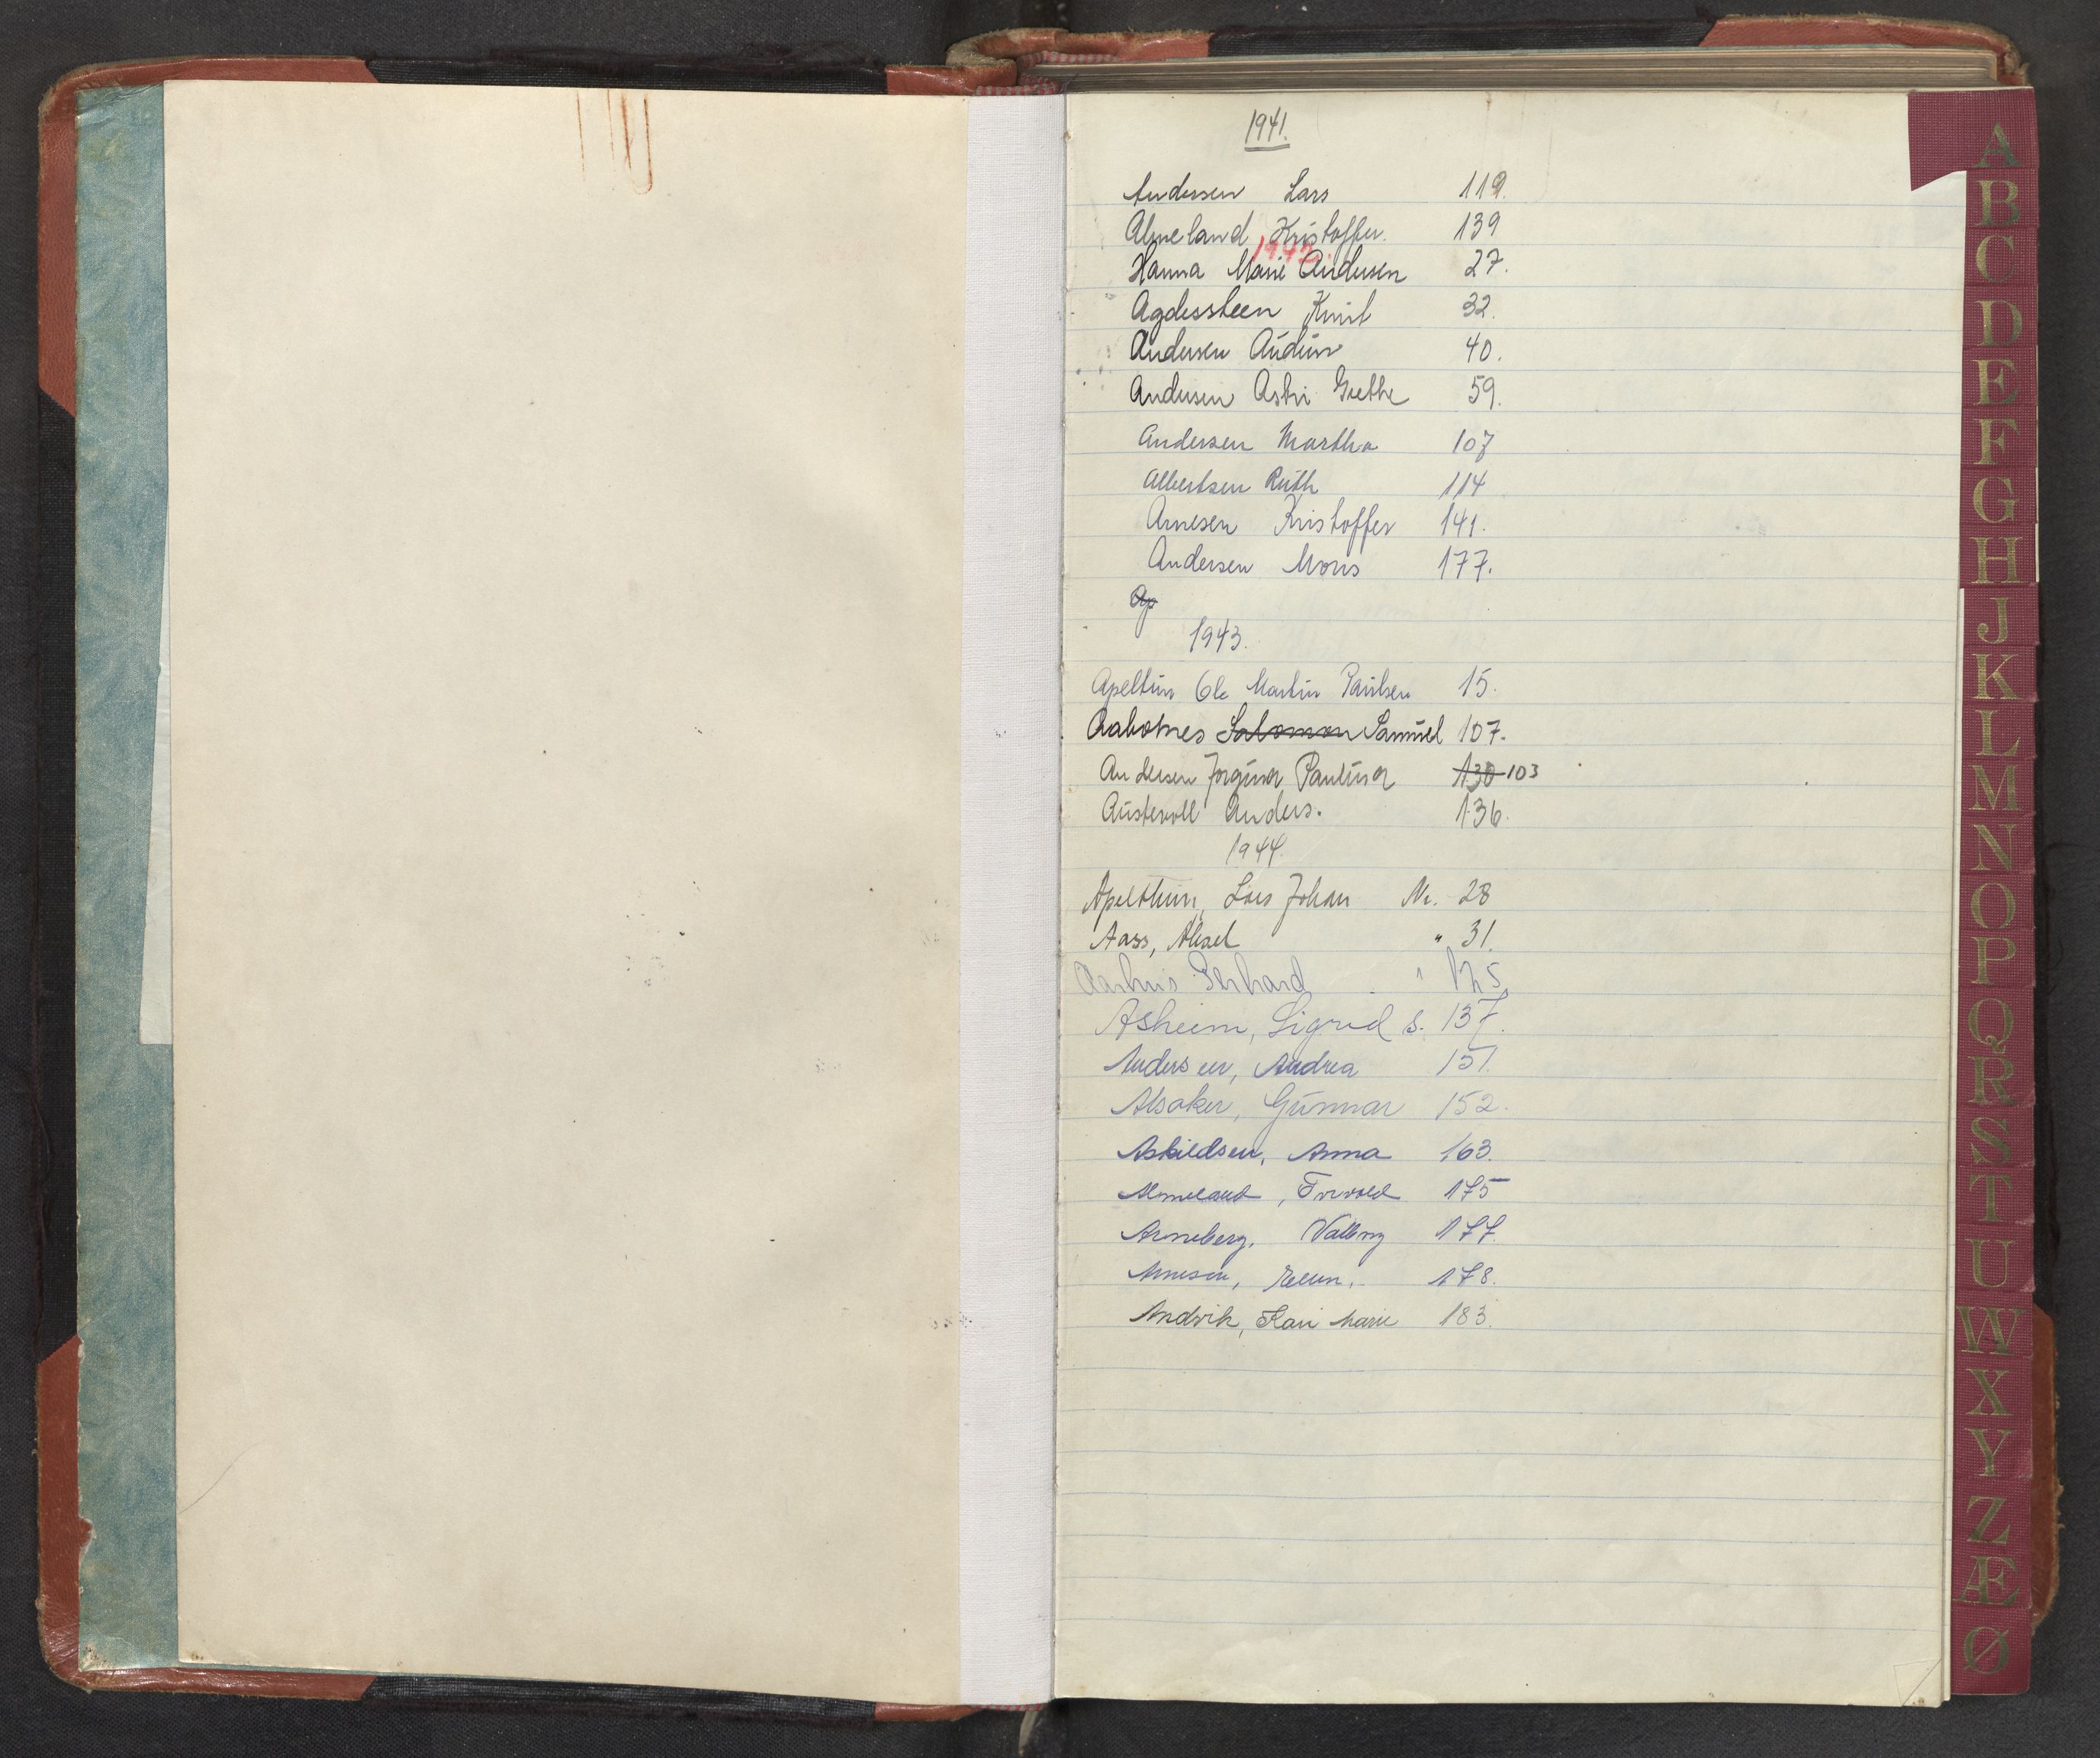 1941.
Andersen Lars 119.
Almeland Kristoffer. 139
1942.
Hanna Marie Andersen 27.
Agdessteen Knut 32.
Andersen Audun 40.
Andersen Astri Grethe 59.
Andersen Martha 107
Albertsen Ruth 114
Arnesen Kristoffer 141.
Andersen Mons 177.
Ap
1943.
Apeltun Ole Martin Paulsen 15.
Aabotnes Salomon Samuel 107.
Andersen Jorgina Paulina 130 103
Austevoll Anders. 136.
1944.
Apelthun, Lars Johan Nr. 28
Aass, Aksel " 31.
Aarhus Gerhard "
Asheim, Sigrid S. 137.
Andersen, Andrea 151.
Alsaker, Gunnar 152.
Askildsen, Anna 163.
Almeland, Torvald 175
Arneberg, Valborg 177.
Arnesen, 178.
Andvik, Kari Marie 183.
A
B
C
D
E
F
G
H
J
K
L
M
N
O
P
Q
R
S
T
U
W
X
Y
Z
Æ
Ø